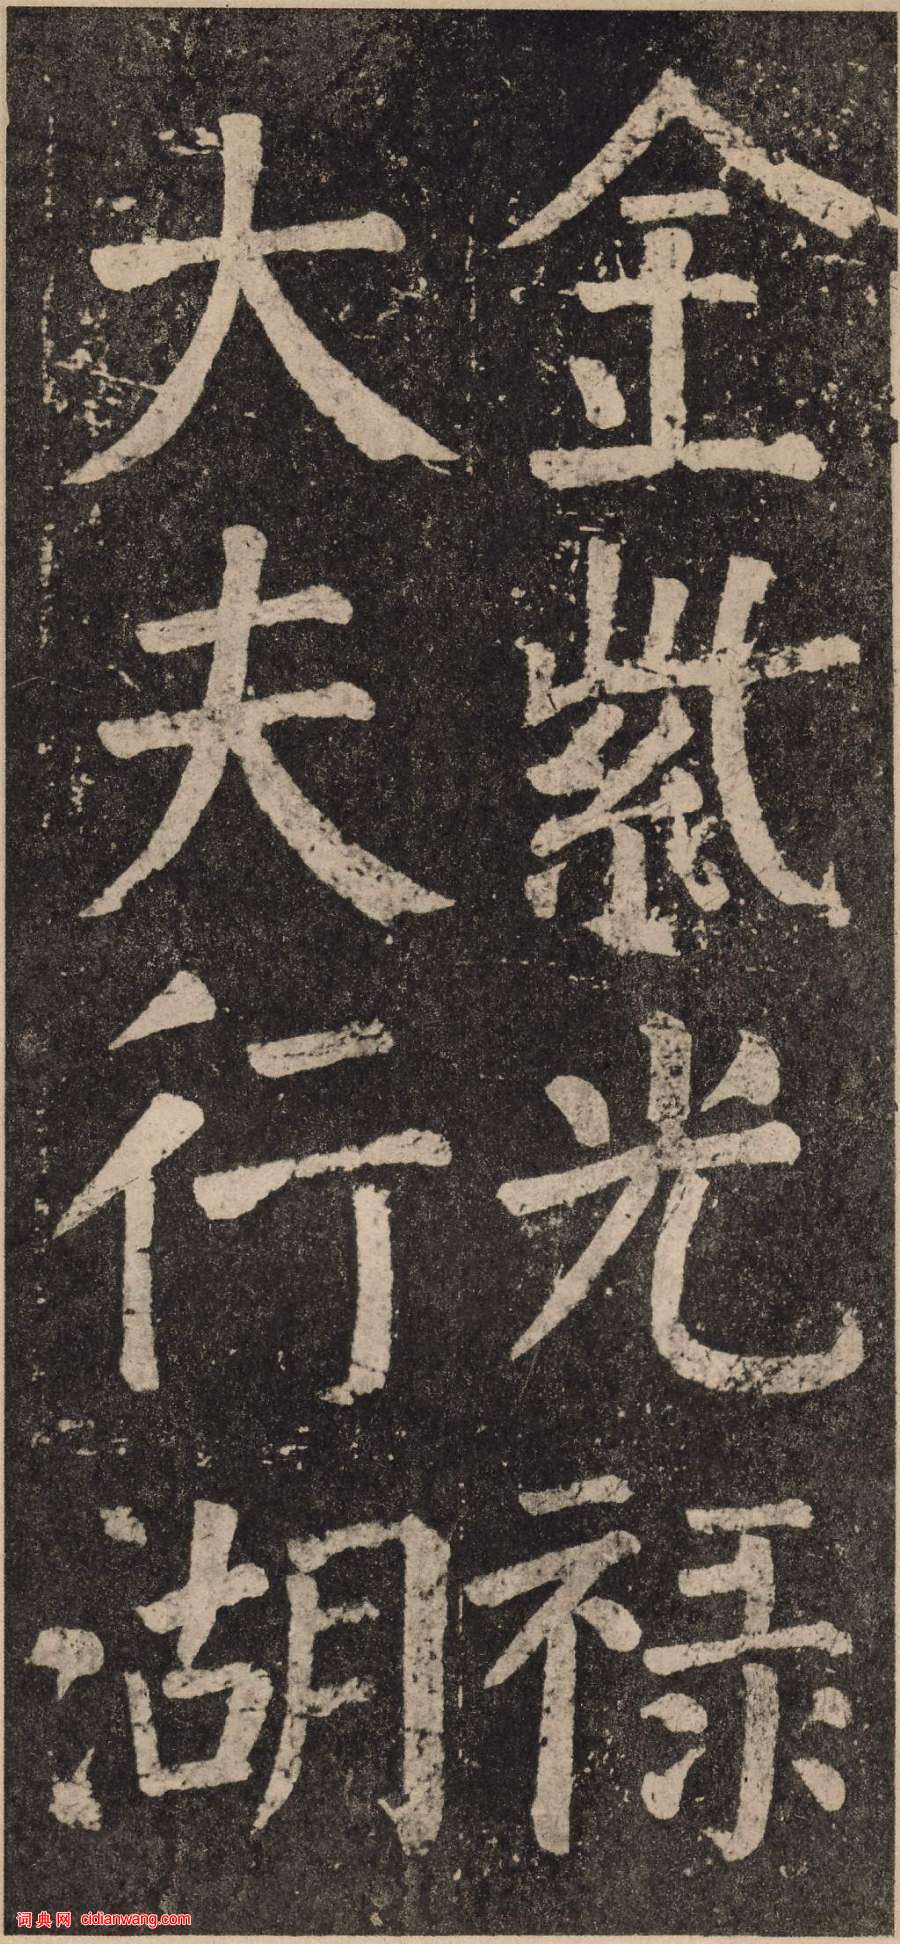 金紫光禄
大夫行湖
词典网 cidianwang.com